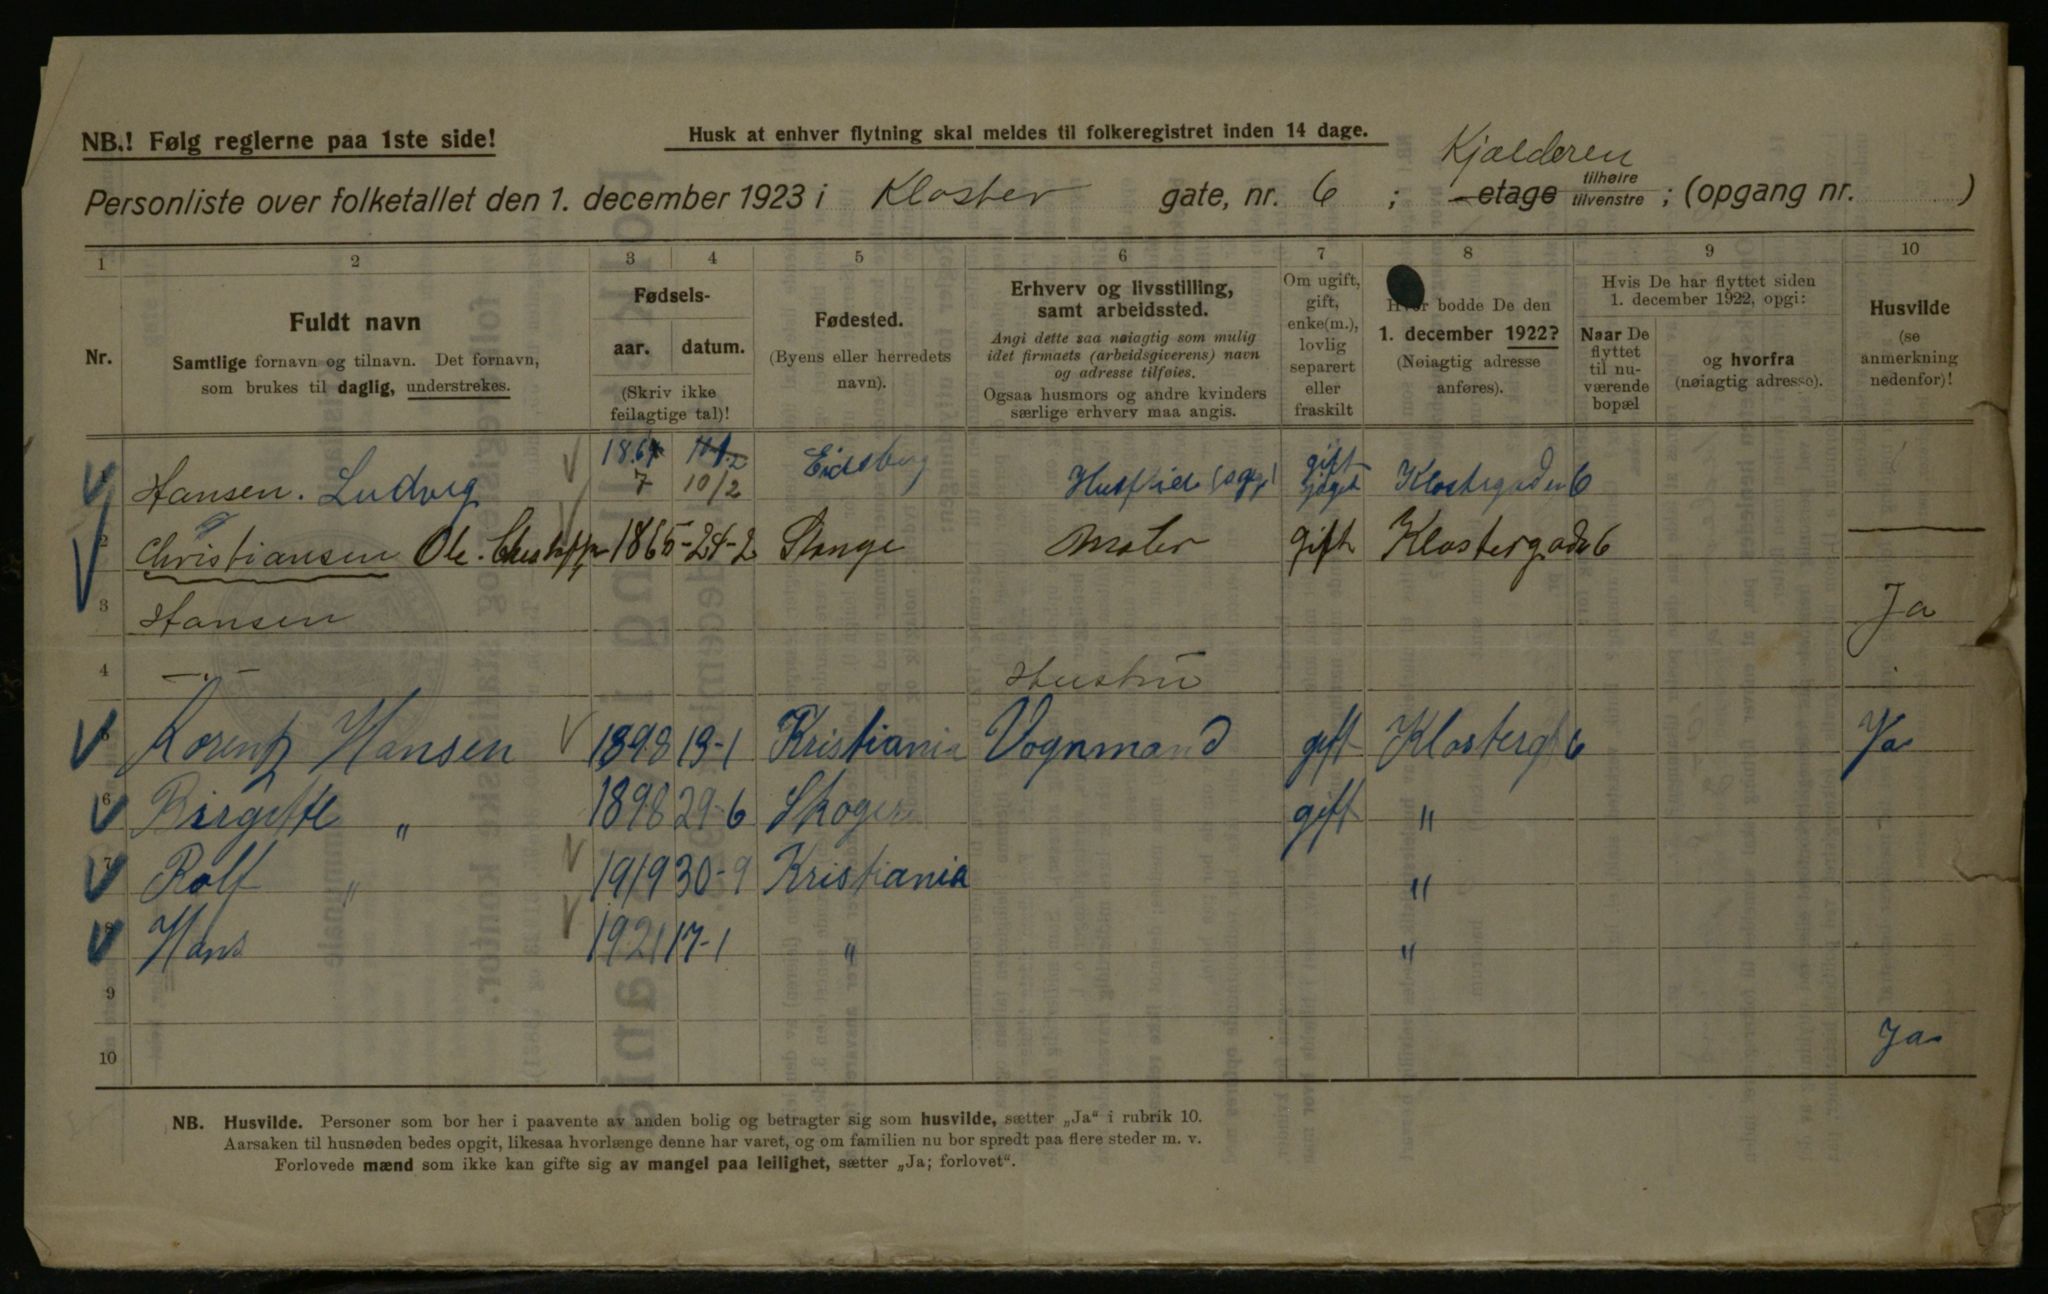 NB.! Følg reglerne paa 1ste side!
Husk at enhver flytning skal meldes til folkeregistret inden 14 dage.
Kjælderen
Personliste over folketallet den 1. december 1923 i Kloster gate, nr. 6 ; etage tilhøire tilvenstre ; (opgang nr. )
1 2 3 4 5 6 7 8 9 10
Nr.
Fuldt navn
Samtlige fornavn og tilnavn. Det fornavn,
som brukes til daglig, understrekes.
Fødsels-
aar. datum.
(Skriv ikke
feilagtige tal)!
Fødested.
(Byens eller herredets
navn).
Erhverv og livsstilling,
samt arbeidssted.
Angi dette saa nøiagtig som mulig
idet firmaets (arbeidsgiverens) navn
og adresse tilføies.
Ogsaa husmors og andre kvinders
særlige erhverv maa angis.
Om ugift,
gift,
enke(m.),
lovlig
separert
eller
fraskilt
Hvor bodde De den
1. december 1922?
(Nøiagtig adresse
anføres).
Hvis De har flyttet siden
1. december 1922, opgi:
Naar De
flyttet
til nu-
værende
bopæl
og hvorfra
(nøiagtig adresse).
Husvilde
(se
anmerkning
nedenfor)!
Hansen. Ludvig 1867 10/2 Eidsberg gift Klostergaden 6
2 Christiansen Ole 1865-24-2 Stange Maler gift Klostergade 6
3 Hansen Ja
4 —"— Hustru
5 Lorentz Hansen 1898 13-1 Kristiania Vognmand gift Klostergt 6 Ja
6 Birgitte " 1898 29-6 Skoger gift "
7 Rolf " 1919 30-9 Kristiania "
8 Hans 1921 17-1 " "
9
10 Ja
NB. Husvilde. Personer som bor her i paavente av anden bolig og betragter sig som husvilde, sætter „Ja" i rubrik 10.
Aarsaken til husnøden bedes opgit, likesaa hvorlænge denne har varet, og om familien nu bor spredt paa flere steder m. v.
Forlovede mænd som ikke kan gifte sig av mangel paa leilighet, sætter „Ja; forlovet".